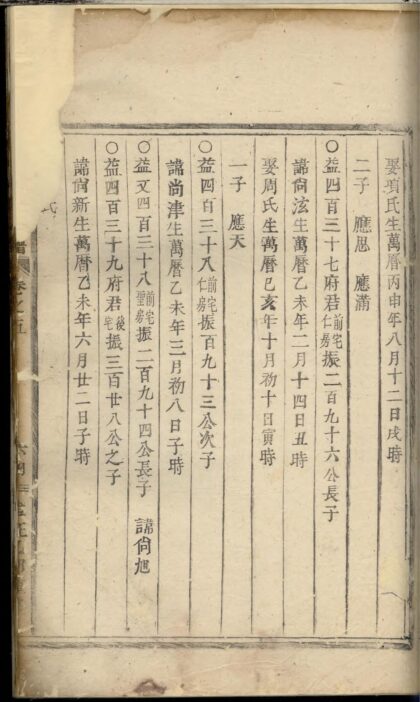 娶項氏生萬曆丙申年八月十二日戌時
二子 應思 應滿
○益四百三十七府君前宅仁房振二百九十六公長子
諱尙泫生萬曆乙未年二月十四日丑時
娶周氏生萬曆己亥年十月初十日寅時
一子 應天
○益四百三十八前宅仁房振百九十三公次子
諱尙津生萬曆乙未年三月初八日子時
○益又四百三十八前宅聖房振二百九十四公長子 諱尙旭
○益四百三十九府君後宅振三百廿八公之子
諱尙新生萬曆乙未年六月廿二日子時
譜 卷之五